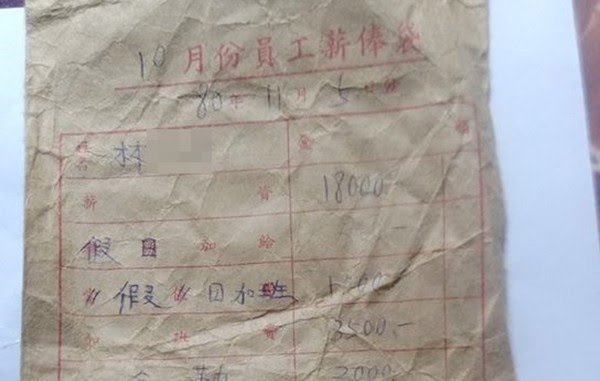 10月份員工薪俸袋
80年11月5日
姓名 林 金 額
薪資 18000.-
假日加給 -
假日加班
加班費 3500.-
全勤 2000.-